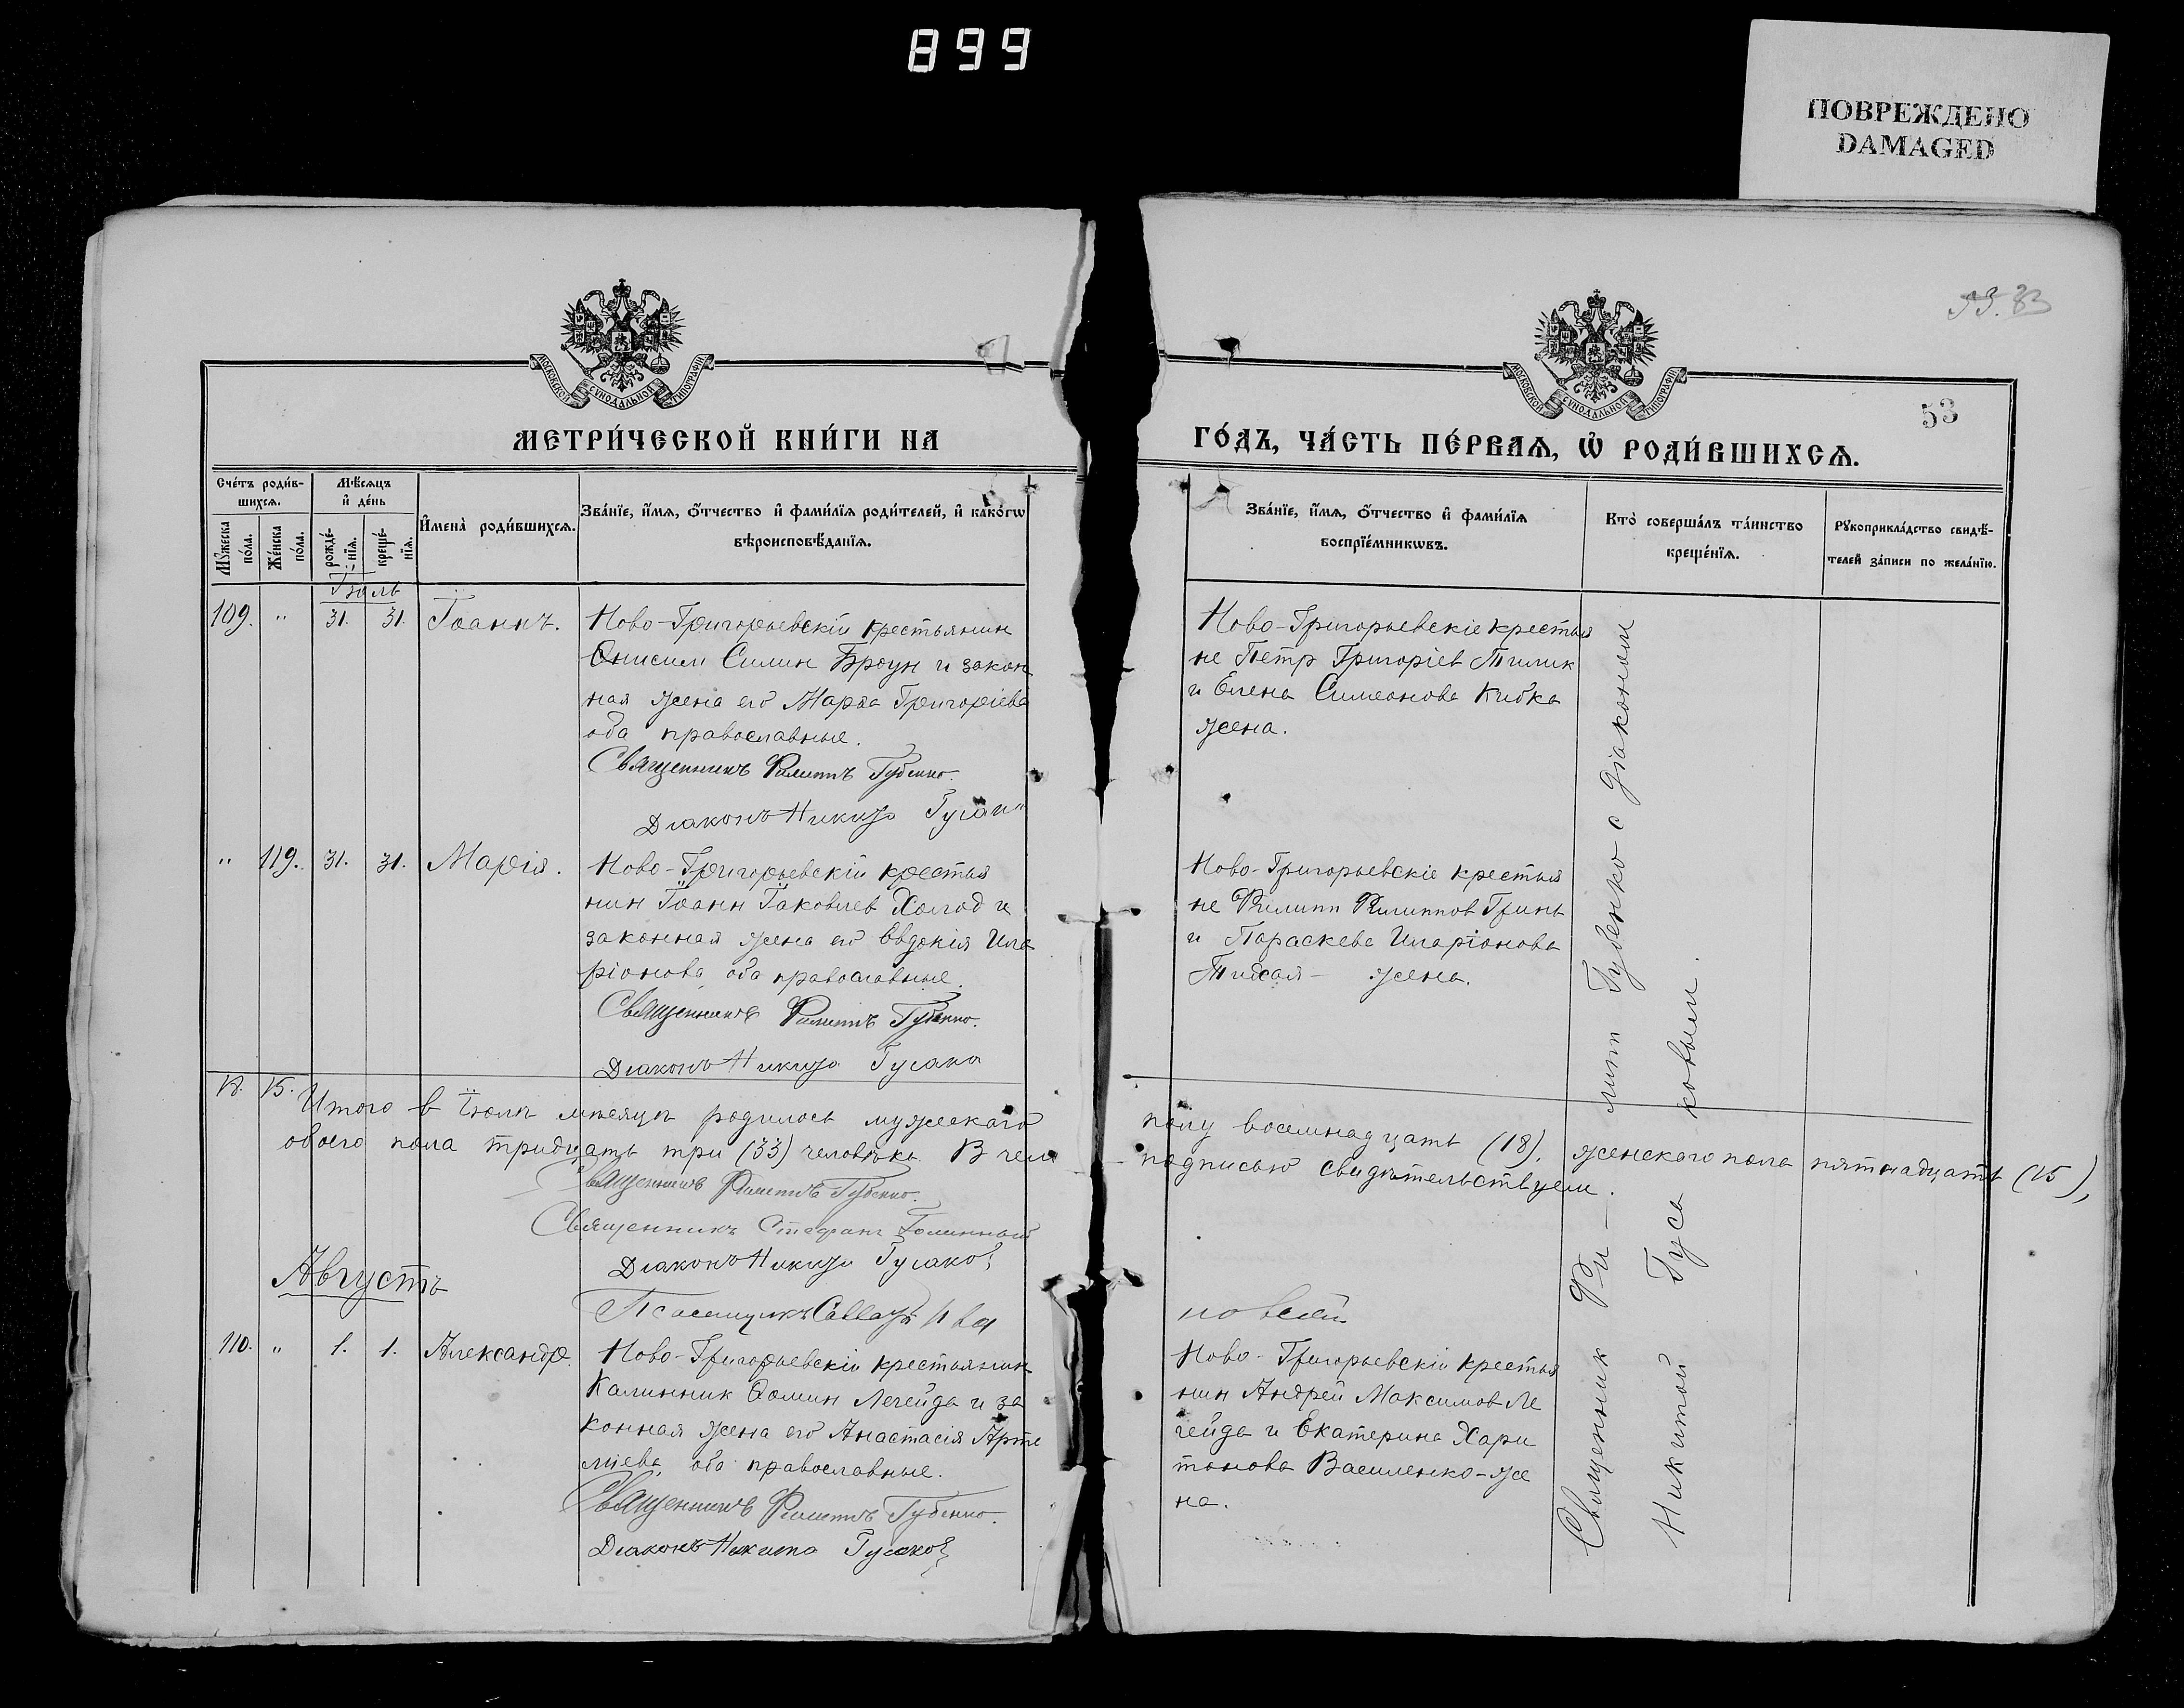 899
ПОВРЕЖДЕНО
DAMAGED
53. 83
МОСКОВСКОЙ СѴНОДАЛЬНОЙ ТИПОГРАФІИ
МОСКОВСКОЙ СѴНОДАЛЬНОЙ ТИПОГРАФІИ
53
МЕТРИ́ЧЕСКОЙ КНИ́ГИ НА
ГО́ДЪ, ЧА́СТЬ ПЕ́РВАѦ, Ѡ҆ РОДИ́ВШИХСѦ.
Сче́тъ роди́в-
шихсѧ.
Мѣ́сѧцъ
и҆ де́нь
Мꙋ́жеска
по́ла.
Же́нска
по́ла.
рожде́-
нїѧ.
креще́-
нїѧ.
И҆мена̀ роди́вшихсѧ.
Зва́нїе, и҆́мѧ, ѻ҆́тчество и҆ фами́лїѧ роди́телей, и҆ како́гѡ
вѣроисповѣ́данїѧ.
Зва́нїе, и҆́мѧ, ѻ҆́тчество и҆ фами́лїѧ
воспрїе́мникѡвъ.
Кто̀ соверша́лъ та́инство
креще́нїѧ.
Рꙋкоприкла́дство свидѣ́-
телей за́писи по жела́нїю.
Іюль
109. " 31. 31. Іоаннъ.
Ново-Григорьевскій крестьянин
Онисим Силин Броун и закон
ная жена его Марѳа Григоріева
оба православные.
Священникъ Филиппъ Губенко.
Діаконъ Никита Гусаков
Ново-Григорьевскіе крестья
не Петр Григоріев Тилик
и Елена Симеонова Кибка
жена.
" 119. 31. 31. Марія.
Ново-Григорьевскій крестья
нин Іоанн Іаковлев Холод и
законная жена его Евдокія Ила
ріонова, оба православные.
Священникъ Филиппъ Губенко.
Діаконъ Никита Гусаков
Ново-Григорьевскіе крестья
не Филипп Филиппов Гринь
и Параскева Иларіонова
Тихая - жена.
18. 15. Итого в іюлѣ мѣсяцѣ родилось мужескаго полу восемнадцать (18), женского пола пятнадцать (15),
обоего пола тридцать три (33) человѣка. В чем подписью свидѣтельствуем.
Священникъ Филиппъ Губенко.
Священникъ Стефанъ
Діаконъ Никита Гусаков
Псаломщикъ Савва
Августъ
110. " 1. 1. Александр.
Ново-Григорьевскій крестьянин
Калинник Ѳомин Легейда и за
конная жена его Анастасія Арте
міева, оба православные.
Священникъ Филиппъ Губенко.
Діаконъ Никита Гусаков
Ново-Григорьевскій крестья
нин Андрей Максимов Ле
гейда и Екатерина Хари
тонова Василенко-же
на.
Священник Филипп Губенко с діаконом
Никитой Гусаковым.